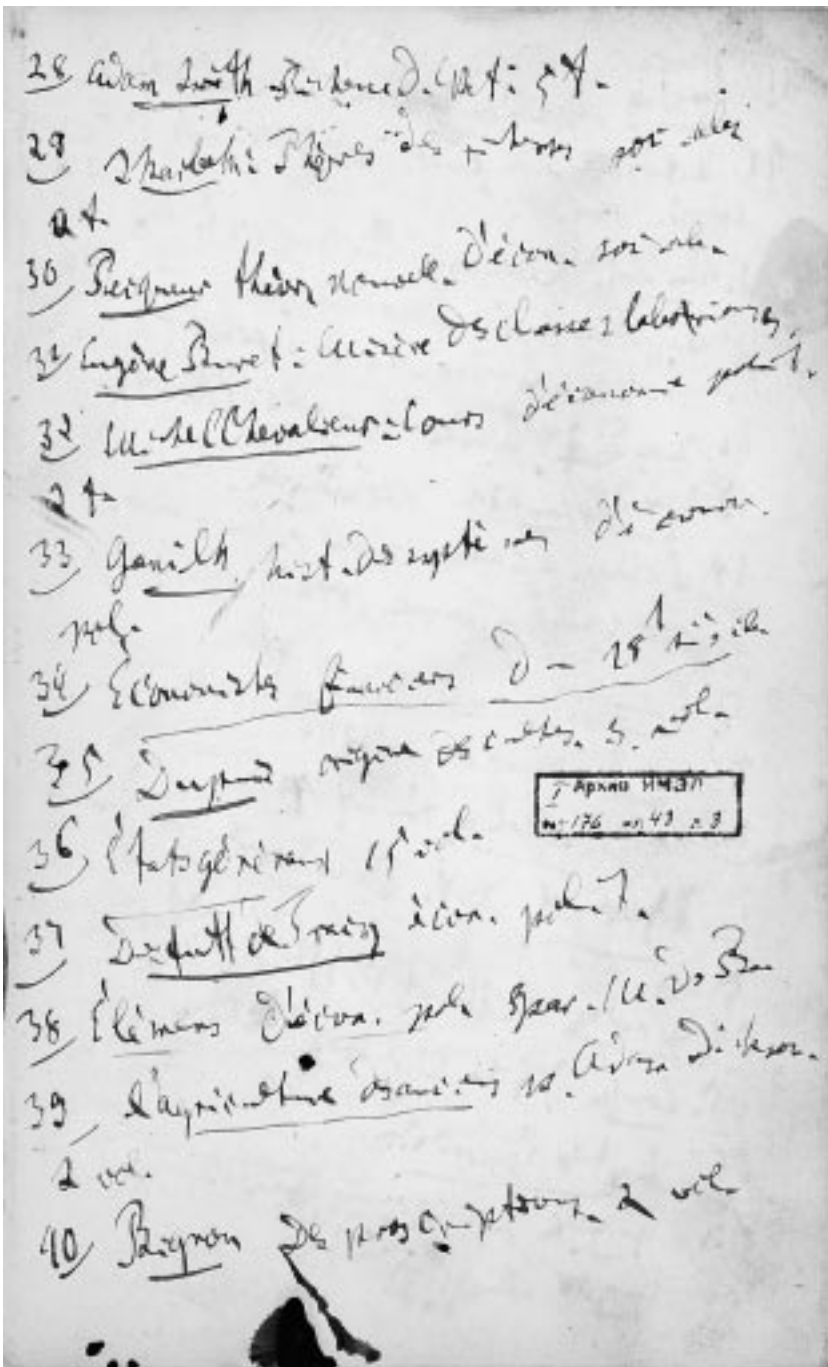 28, Adam Smith. Richesse d. Nat: 5 t.
29, Skarbek: Théorie des richesses sociales
2 t.
30, théorie nouvelle d'écon. sociale.
31, Eugène Buret: Misère des classes laborieuses.
32, Michel Chevalier: Cours d'économie polit.
2 t.
33, Ganilh hist. des systèmes d'économ.
pol.
34, Économistes financiers du 18t siècle
35, Dupuis origine des cultes. 3. vol.
36, États généraux 15 vol.
37, Destutt de Tracy écon. polit.
38, Élémens d'écon. pol. par. M. de B.
39, L'agriculture des anciens p. Adam Dickson.
2 vol.
40, Bignon des proscriptions. 2 vol.
Архив ИМЭЛ
176 43 3